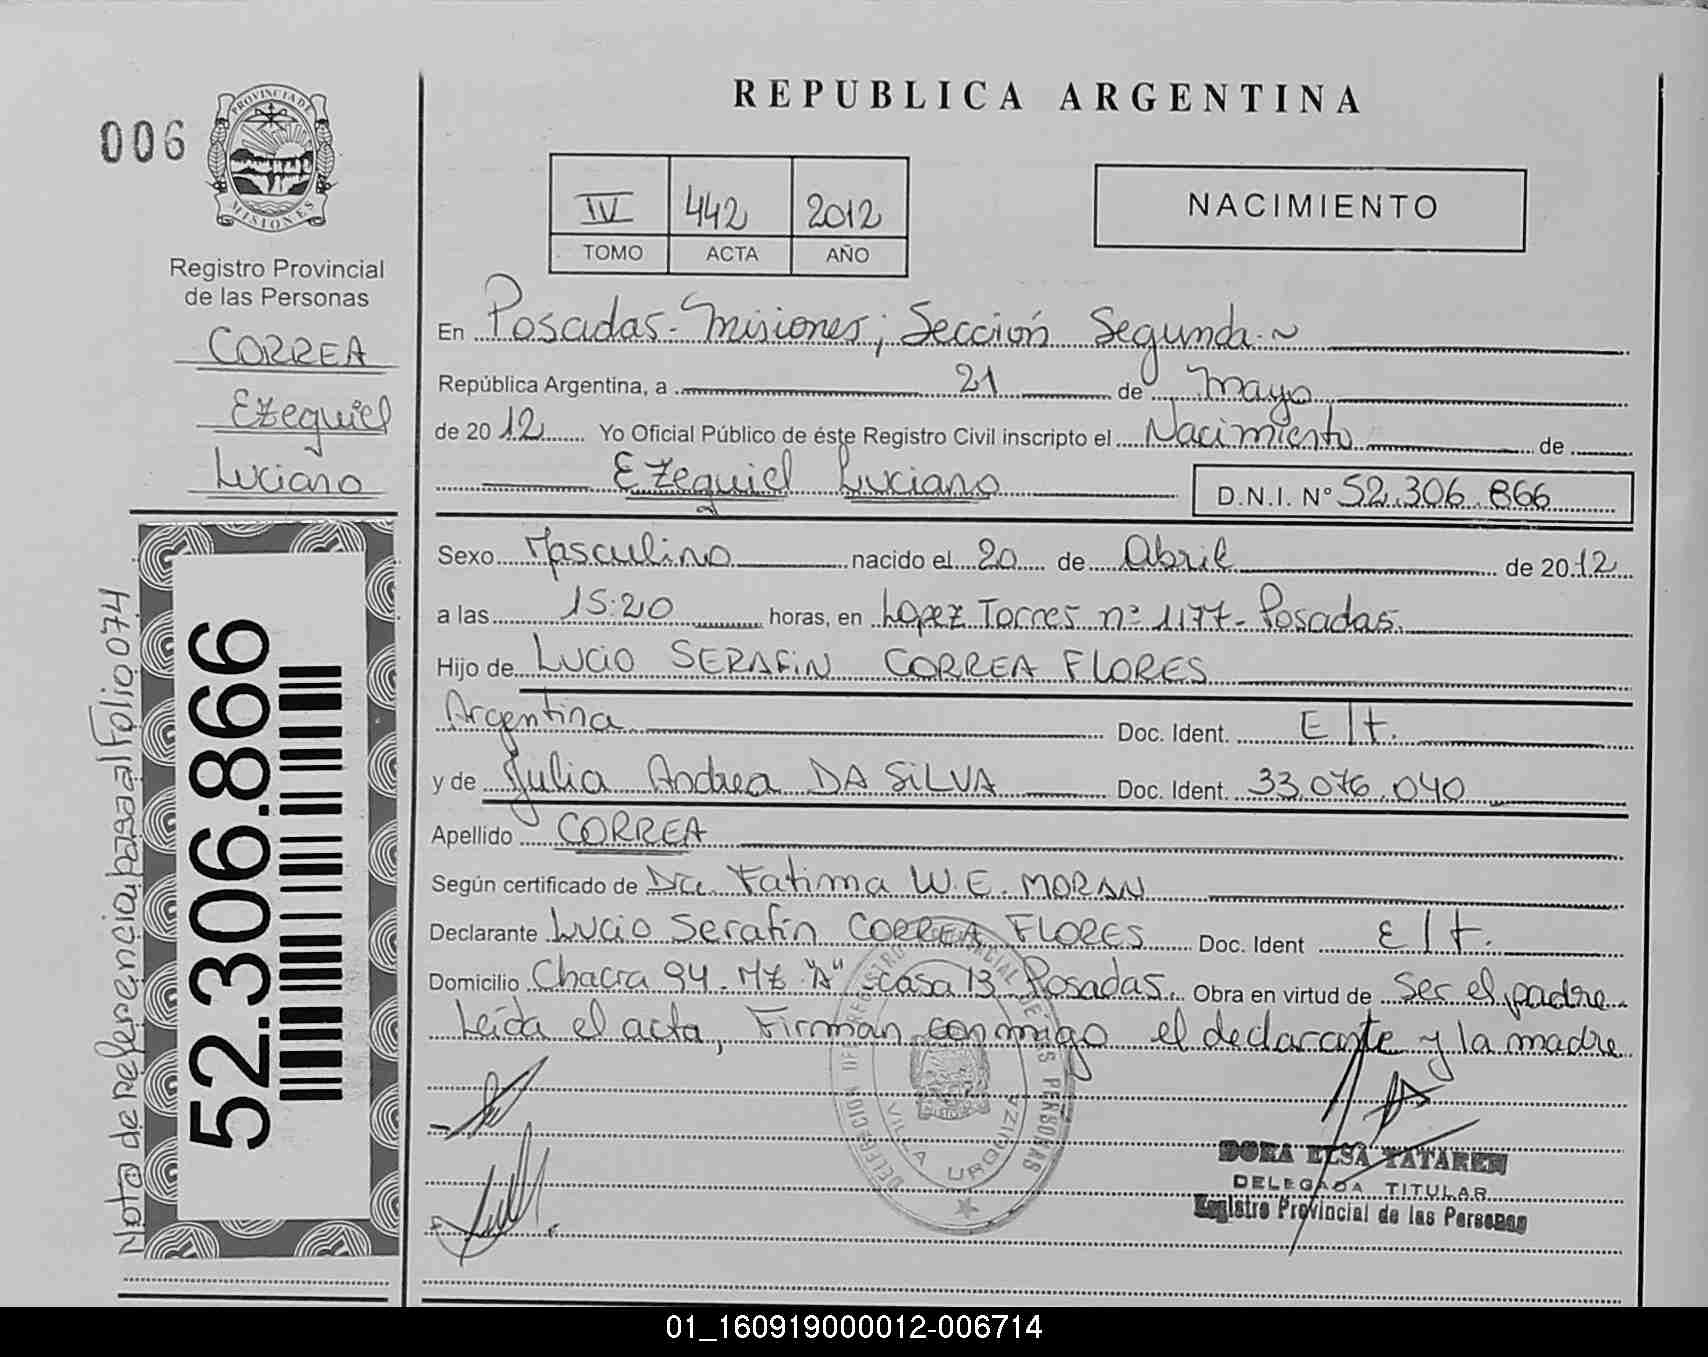 REPUBLICA ARGENTINA
006
PROVINCIA DE
MISIONES
Registro Provincial
de las Personas
CORREA
Ezequiel
Luciano
52.306.866
Nota de referencia pasa al Folio 074
IV 442 2012
TOMO ACTA AÑO
NACIMIENTO
En Posadas - Misiones; Sección Segunda.~
República Argentina, a 21 de Mayo
de 2012 Yo Oficial Público de éste Registro Civil inscripto el Nacimiento de
Ezequiel Luciano D.N.I. N° 52.306.866
Sexo Masculino nacido el 20 de Abril de 2012
a las 15:20 horas, en Lopez Torres n° 1177- Posadas.
Hijo de Lucio SERAFIN CORREA FLORES
Argentina Doc. Ident. E/t.
y de Julia Andrea DA SILVA Doc. Ident. 33.076.040
Apellido CORREA
Según certificado de Dra. Fatima W.E. MORAN
Declarante Lucio Serafin CORREA FLORES Doc. Ident E/t.
Domicilio Chacra 94. Mz "A" casa 13 Posadas. Obra en virtud de Ser el padre
Leída el acta, Firman conmigo el declarante y la madre
VILLA URQUIZA
DORA ELSA TATAREN
DELEGADA TITULAR
Registro Provincial de las Personas
01_160919000012-006714